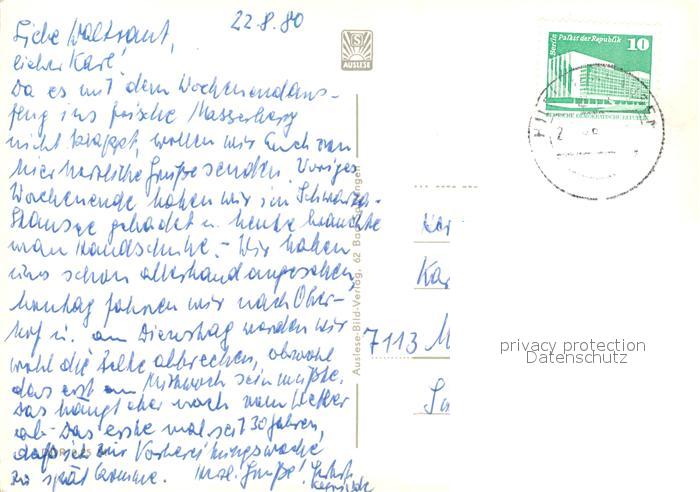 22.8.80
Liebe Waltraut,
lieber Karl!
Da es mit dem Wochenendaus-
flug ins frische Wasser
nicht klappt, wollen wir Euch von
hier herzliche Grüße senden. Voriges
Wochenende haben wir im Schwarza-
Stausee gebadet u. heute brauchte
man Handschuhe. - Wir haben
uns schon allerhand angesehen,
Montag fahren wir nach Ober-
hof u. am Dienstag werden wir
wohl die Zelte abbrechen, obwohl
das erst am Mittwoch sein müßte.
Das hängt aber noch vom Wetter
ab. Das erste mal seit 30 Jahren,
daß ich zur Vorbereitungswoche
zu spät komme. Herzl. Grüße!
AUSLESE
Auslese-Bild-Verlag, 62 Bad
Berlin Palast der Republik 10
DEUTSCHE DEMOKRATISCHE REPUBLIK
Kar
7113 M
privacy protection
Datenschutz